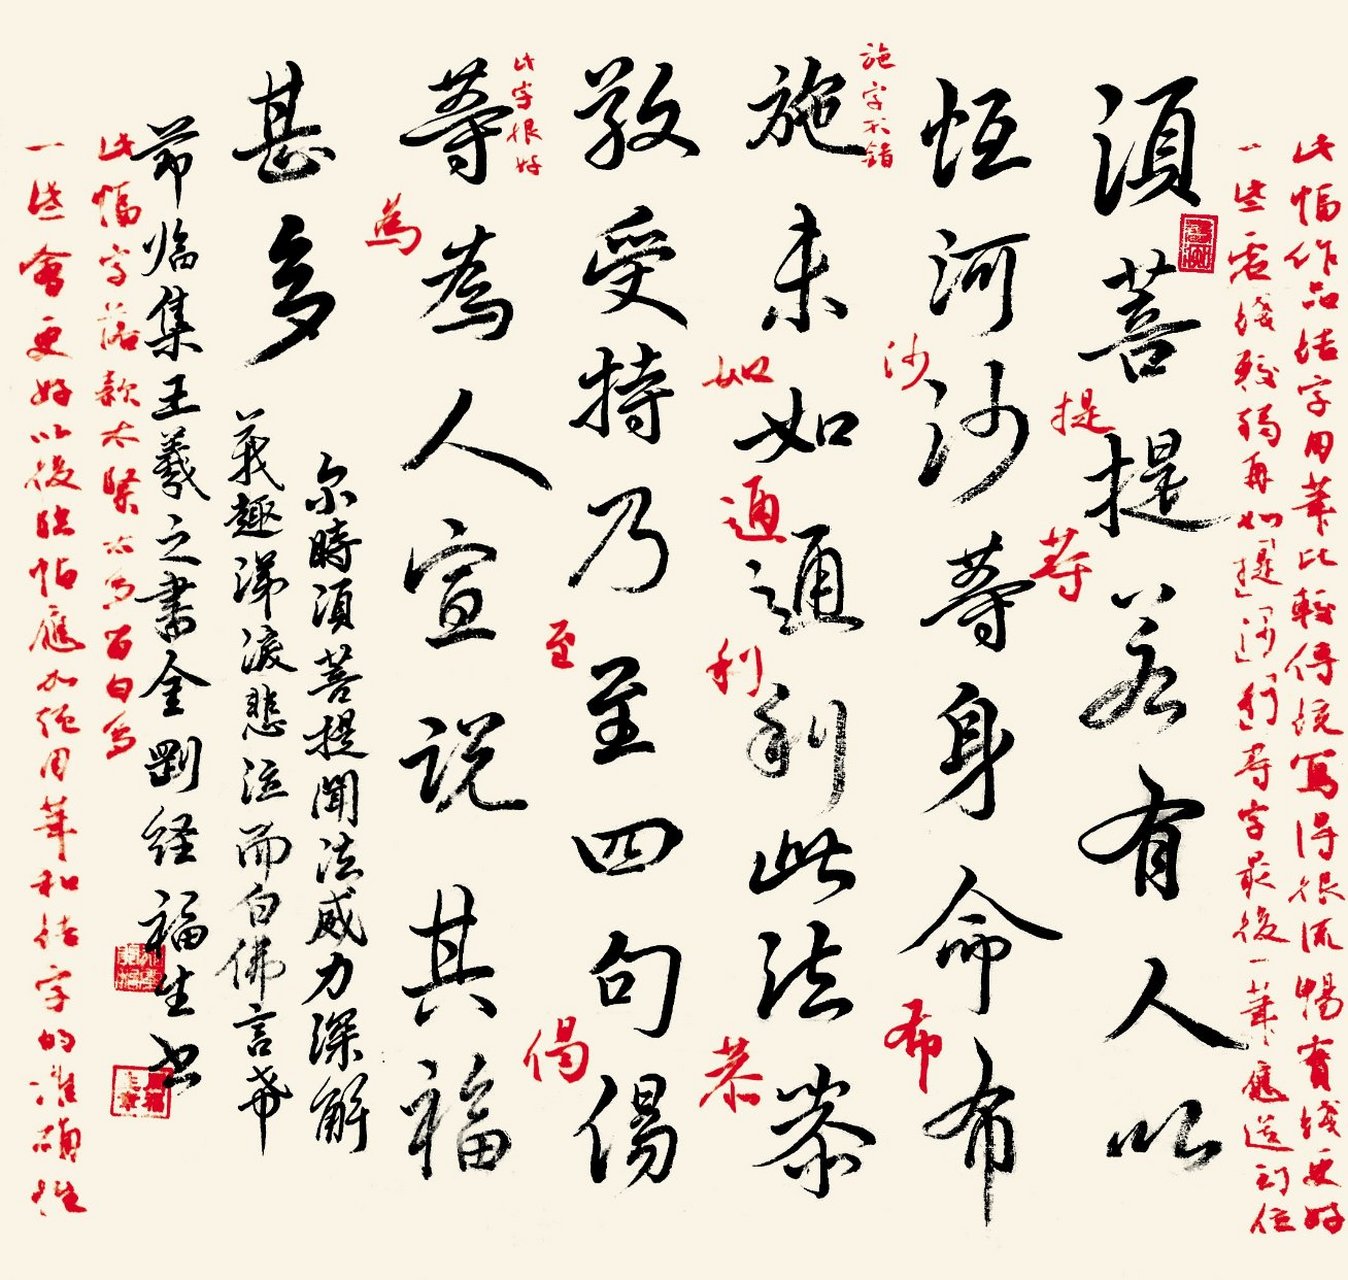 此幅作品结字用笔比较传统写得很流暢實线更好
一些虚线較弱再如「提」「沙」「利」等字最後一笔應送到位
須菩提若有人以
提
等
恒河沙等身命布
沙
布
施字不錯
施未如通利此法恭
如
通
利
恭
敬受持乃至四句偈
至
偈
此字很好
等為人宣説其福
為
甚多
尔時須菩提聞法威力深解
義趣涕淚悲泣而白佛言希
節临集王羲之書金剛经福生书
此幅字落款太紧
一些會更好以後临帖應加强用笔和结字的准確性